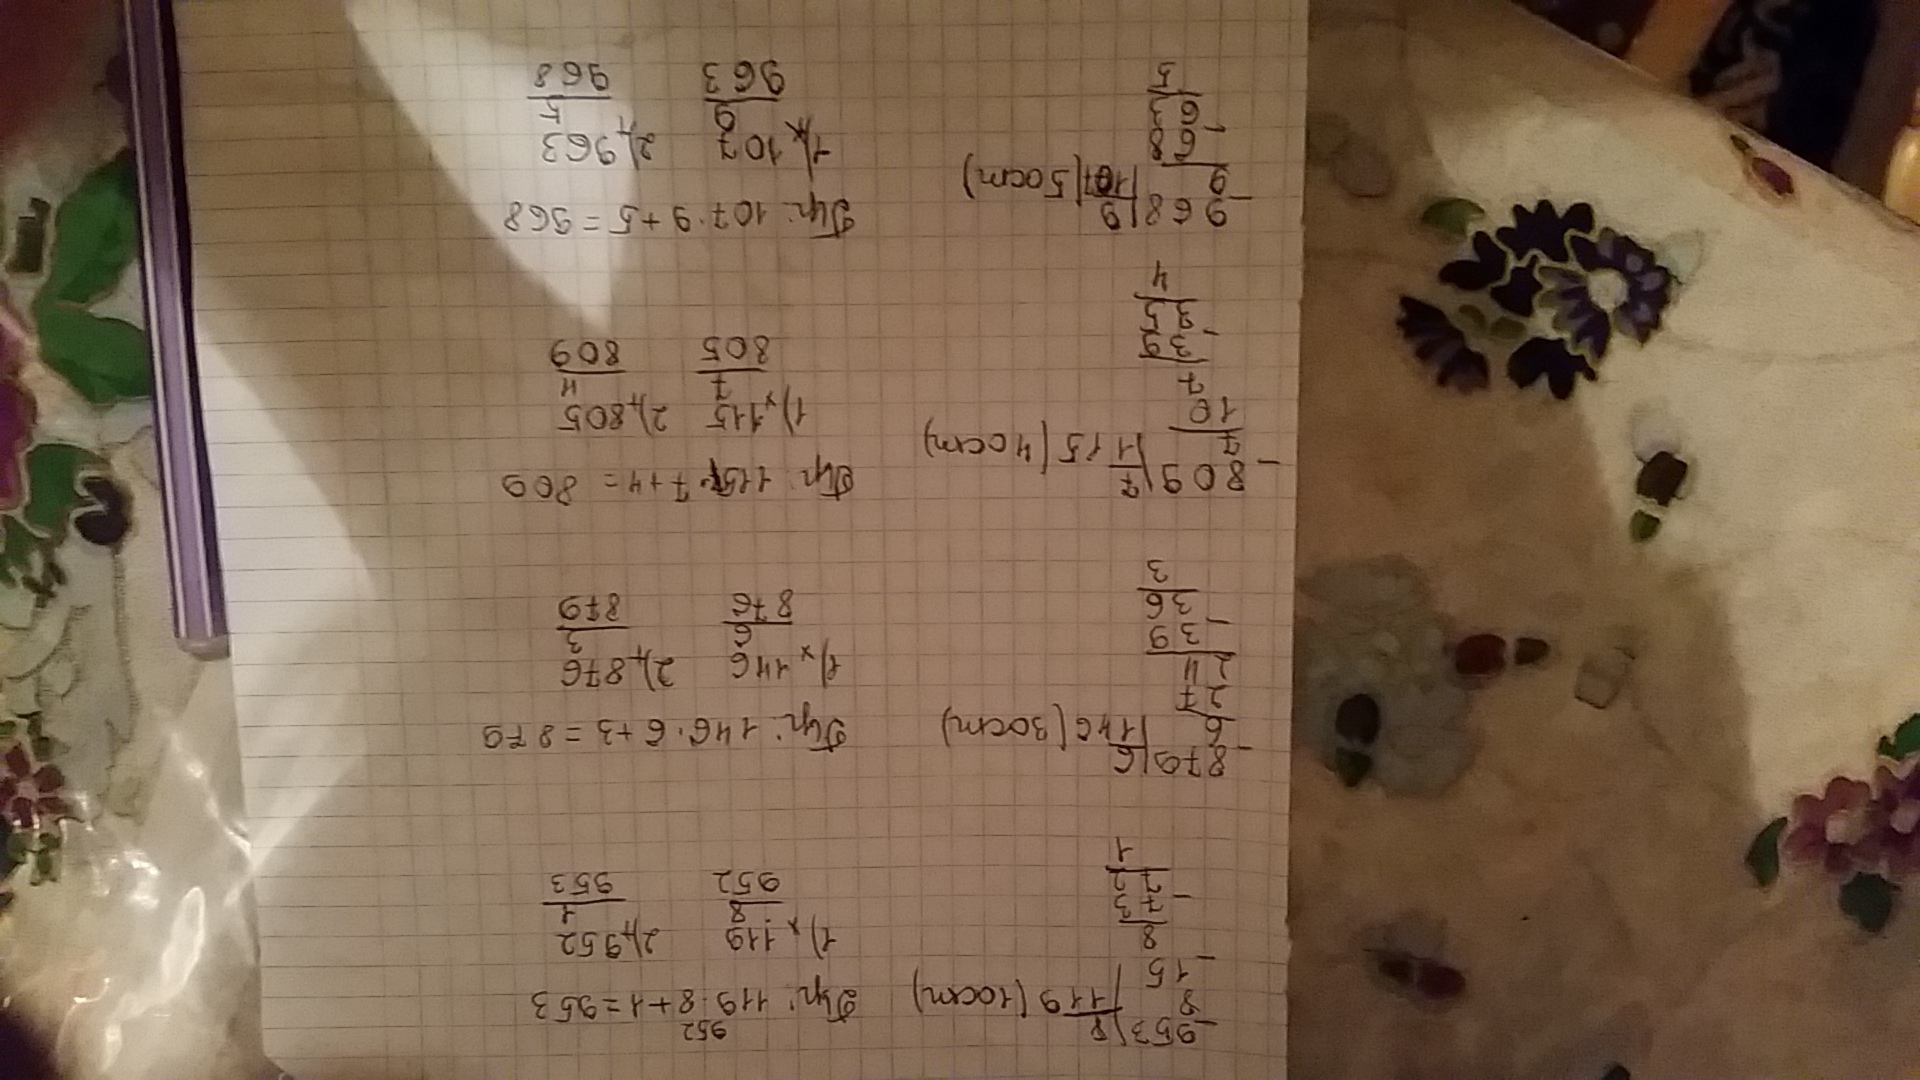 953|8
8 |119 (1ост)
15
8
73
72
1
952
Пр: 119·8+1=953
1) ×119 2) +952
8 1
952 953
879|6
6 |146 (3ост)
27
24
39
36
3
Пр: 146·6+3=879
1) ×146 2) +876
6 3
876 879
809|7
7 |115 (4ост)
10
7
39
35
4
Пр: 115·7+4=809
1) ×115 2) +805
7 4
805 809
968|9
9 |107 (5ост)
68
63
5
Пр: 107·9+5=968
1) ×107 2) +963
9 5
963 968